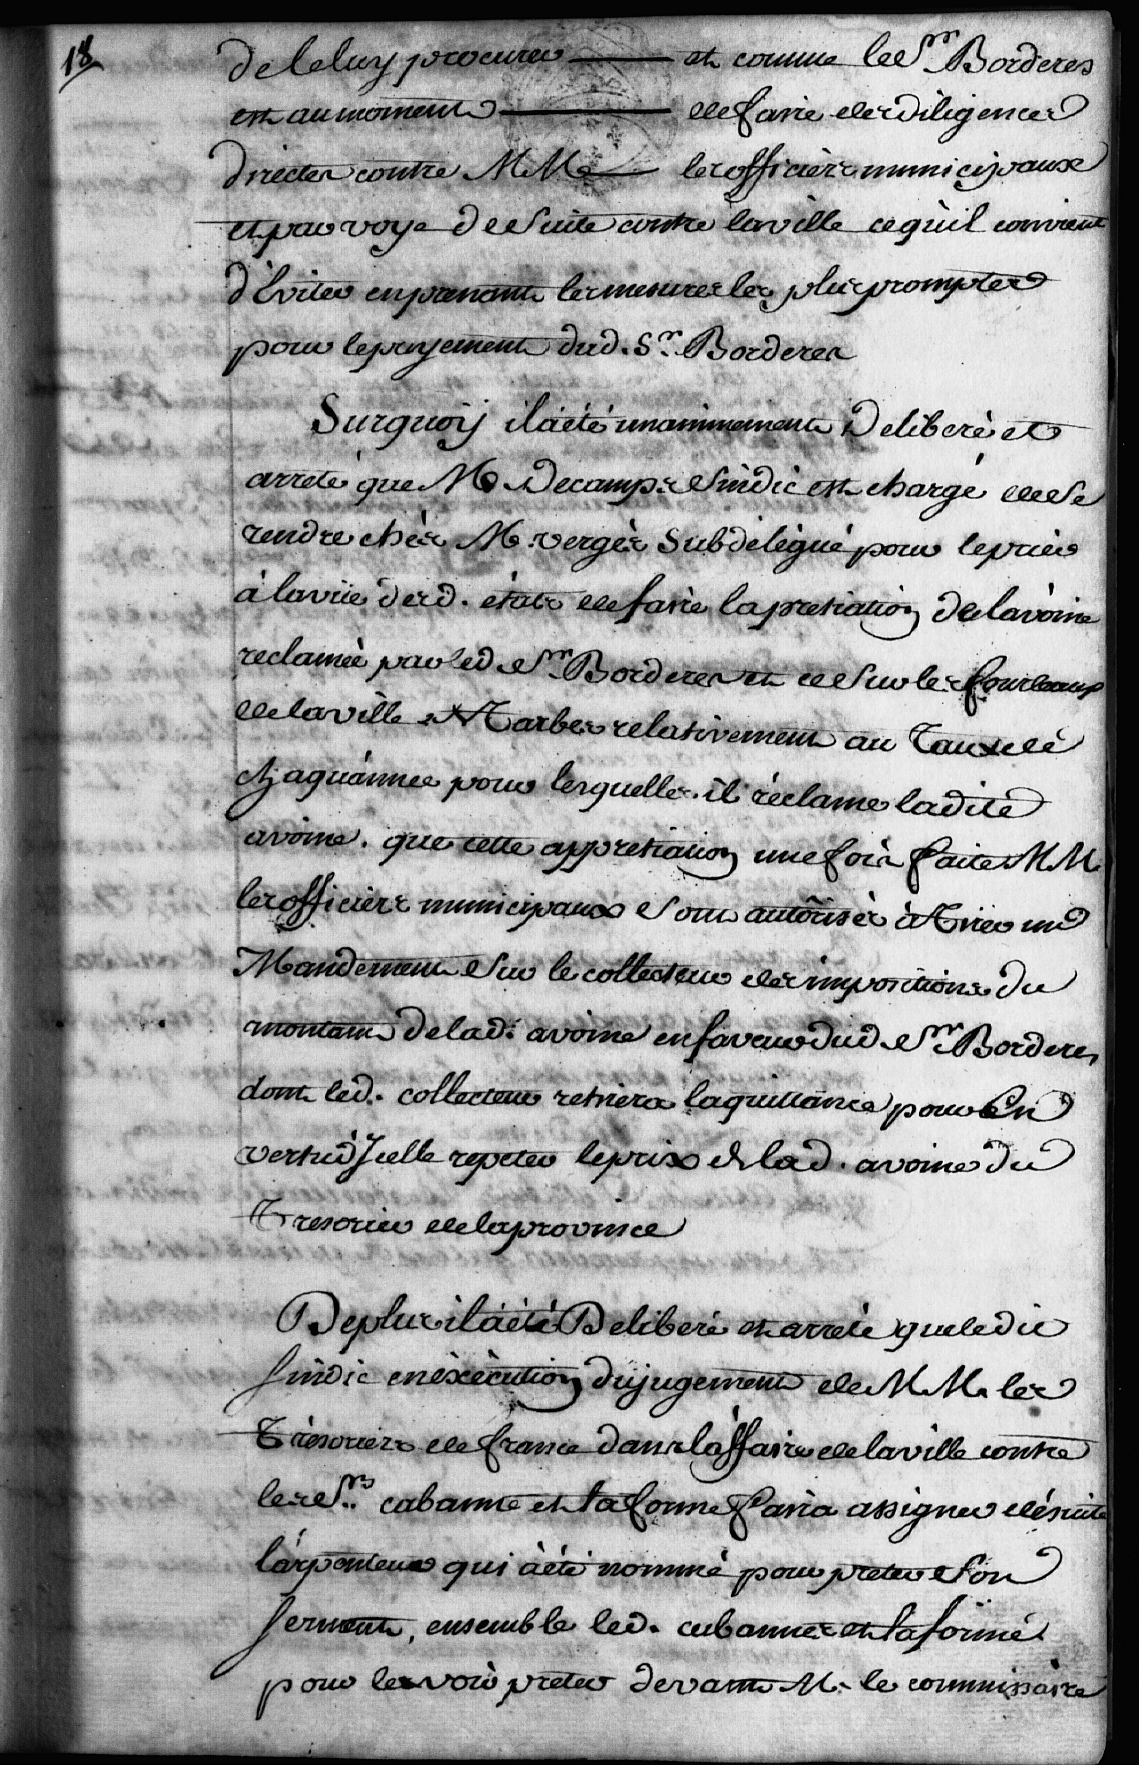 18
de le luy procurer ——— et comme le Sr. Borderes
est au moment ——— de faire des diligences
directes contre MM. — les officiers municipaux
et par voye de Suite contre la ville ce qu'il convient
d'éviter en prenant les mesures les plus promptes
pour le payement dud. Sr. Borderes
Surquoy il a été unanimement Deliberé et
arreté que M. Decamps Sindic est chargé de Se
rendre chés M. vergés Subdélégué pour le prier
à la vüe desd. états de faire la pretiation de lavoine
reclamée par led. Sr. Borderes et ce Sur les fourleaux
de la ville de Tarbes relativement au Taux de
chaqu'année pour lesquelles il réclame ladite
avoine. que cette appretiation une fois faite MM
les officiers municipaux Sont autorisés à Tirer un
Mandement Sur le collecteur des impositions du
montant de lad. avoine en faveur dud. Sr. Borderes
dont led. collecteur retirera la quittance pour En
vertu d'Icelle repeter le prix de lad. avoine du
Tresorier de la province
De plus il a été Deliberé et arreté que le dit
Sindic en éxécution du jugement de MM. les
Trésoriers de france dans l'affaire de la ville contre
les Srs. cabanne et laforme faira assigner de suite
l'arpenteur qui a été nommé pour preter Son
Serment, ensemble led. cabannes et laforme
pour le voir preter devant M. le commissaire